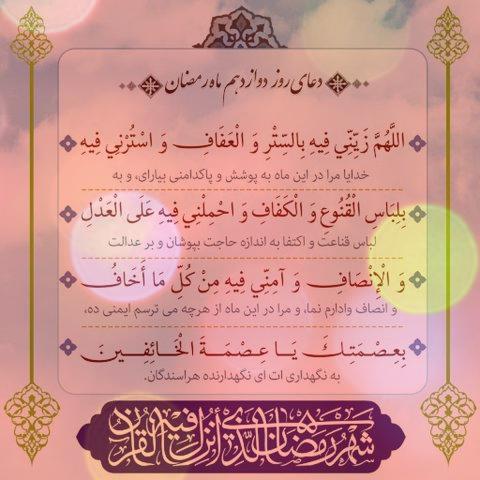 دعای روز دوازدهم ماه رمضان
اللَّهُمَّ زَيِّنِّي فِيهِ بِالسِّتْرِ وَ الْعَفَافِ وَ اسْتُرْنِي فِيهِ
خدایا مرا در این ماه به پوشش و پاکدامنی بیارای، و به
بِلِبَاسِ الْقُنُوعِ وَ الْكَفَافِ وَ احْمِلْنِي فِيهِ عَلَى الْعَدْلِ
لباس قناعت و اکتفا به اندازه حاجت بپوشان و بر عدالت
وَ الْإِنْصَافِ وَ آمِنِّي فِيهِ مِنْ كُلِّ مَا أَخَافُ
و انصاف وادارم نما، و مرا در این ماه از هرچه می ترسم ایمنی ده،
بِعِصْمَتِكَ يَا عِصْمَةَ الْخَائِفِينَ
به نگهداری ات ای نگهدارنده هراسندگان.
شهر رمضان الذی أنزل فیه القرآن